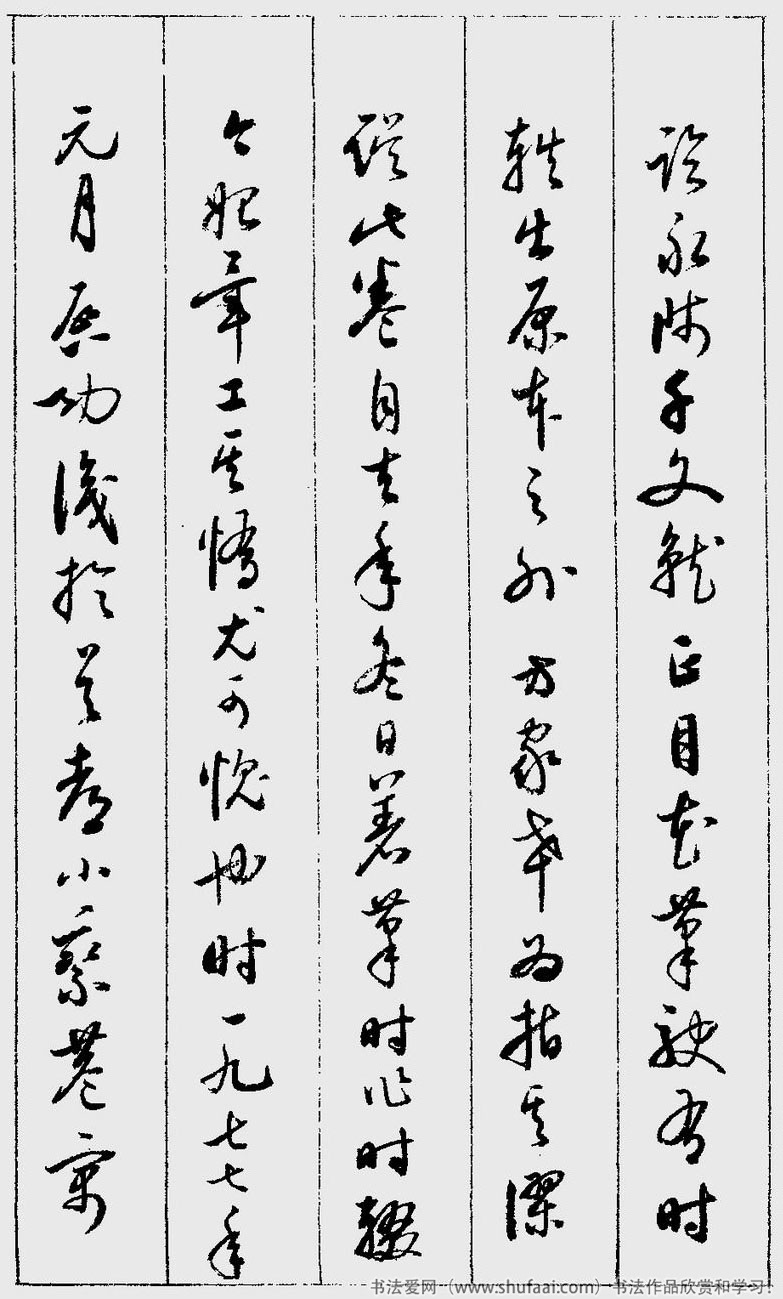 临永师千文虽正目在笔驶有时
轶出原本之外方家幸为指其谬
误此卷自去年冬日着笔时作时辍
今始毕工其惰尤可愧也时一九七七年
元月启功识于首都小乘巷寓
书法爱网（www.shufaai.com）书法作品欣赏和学习！